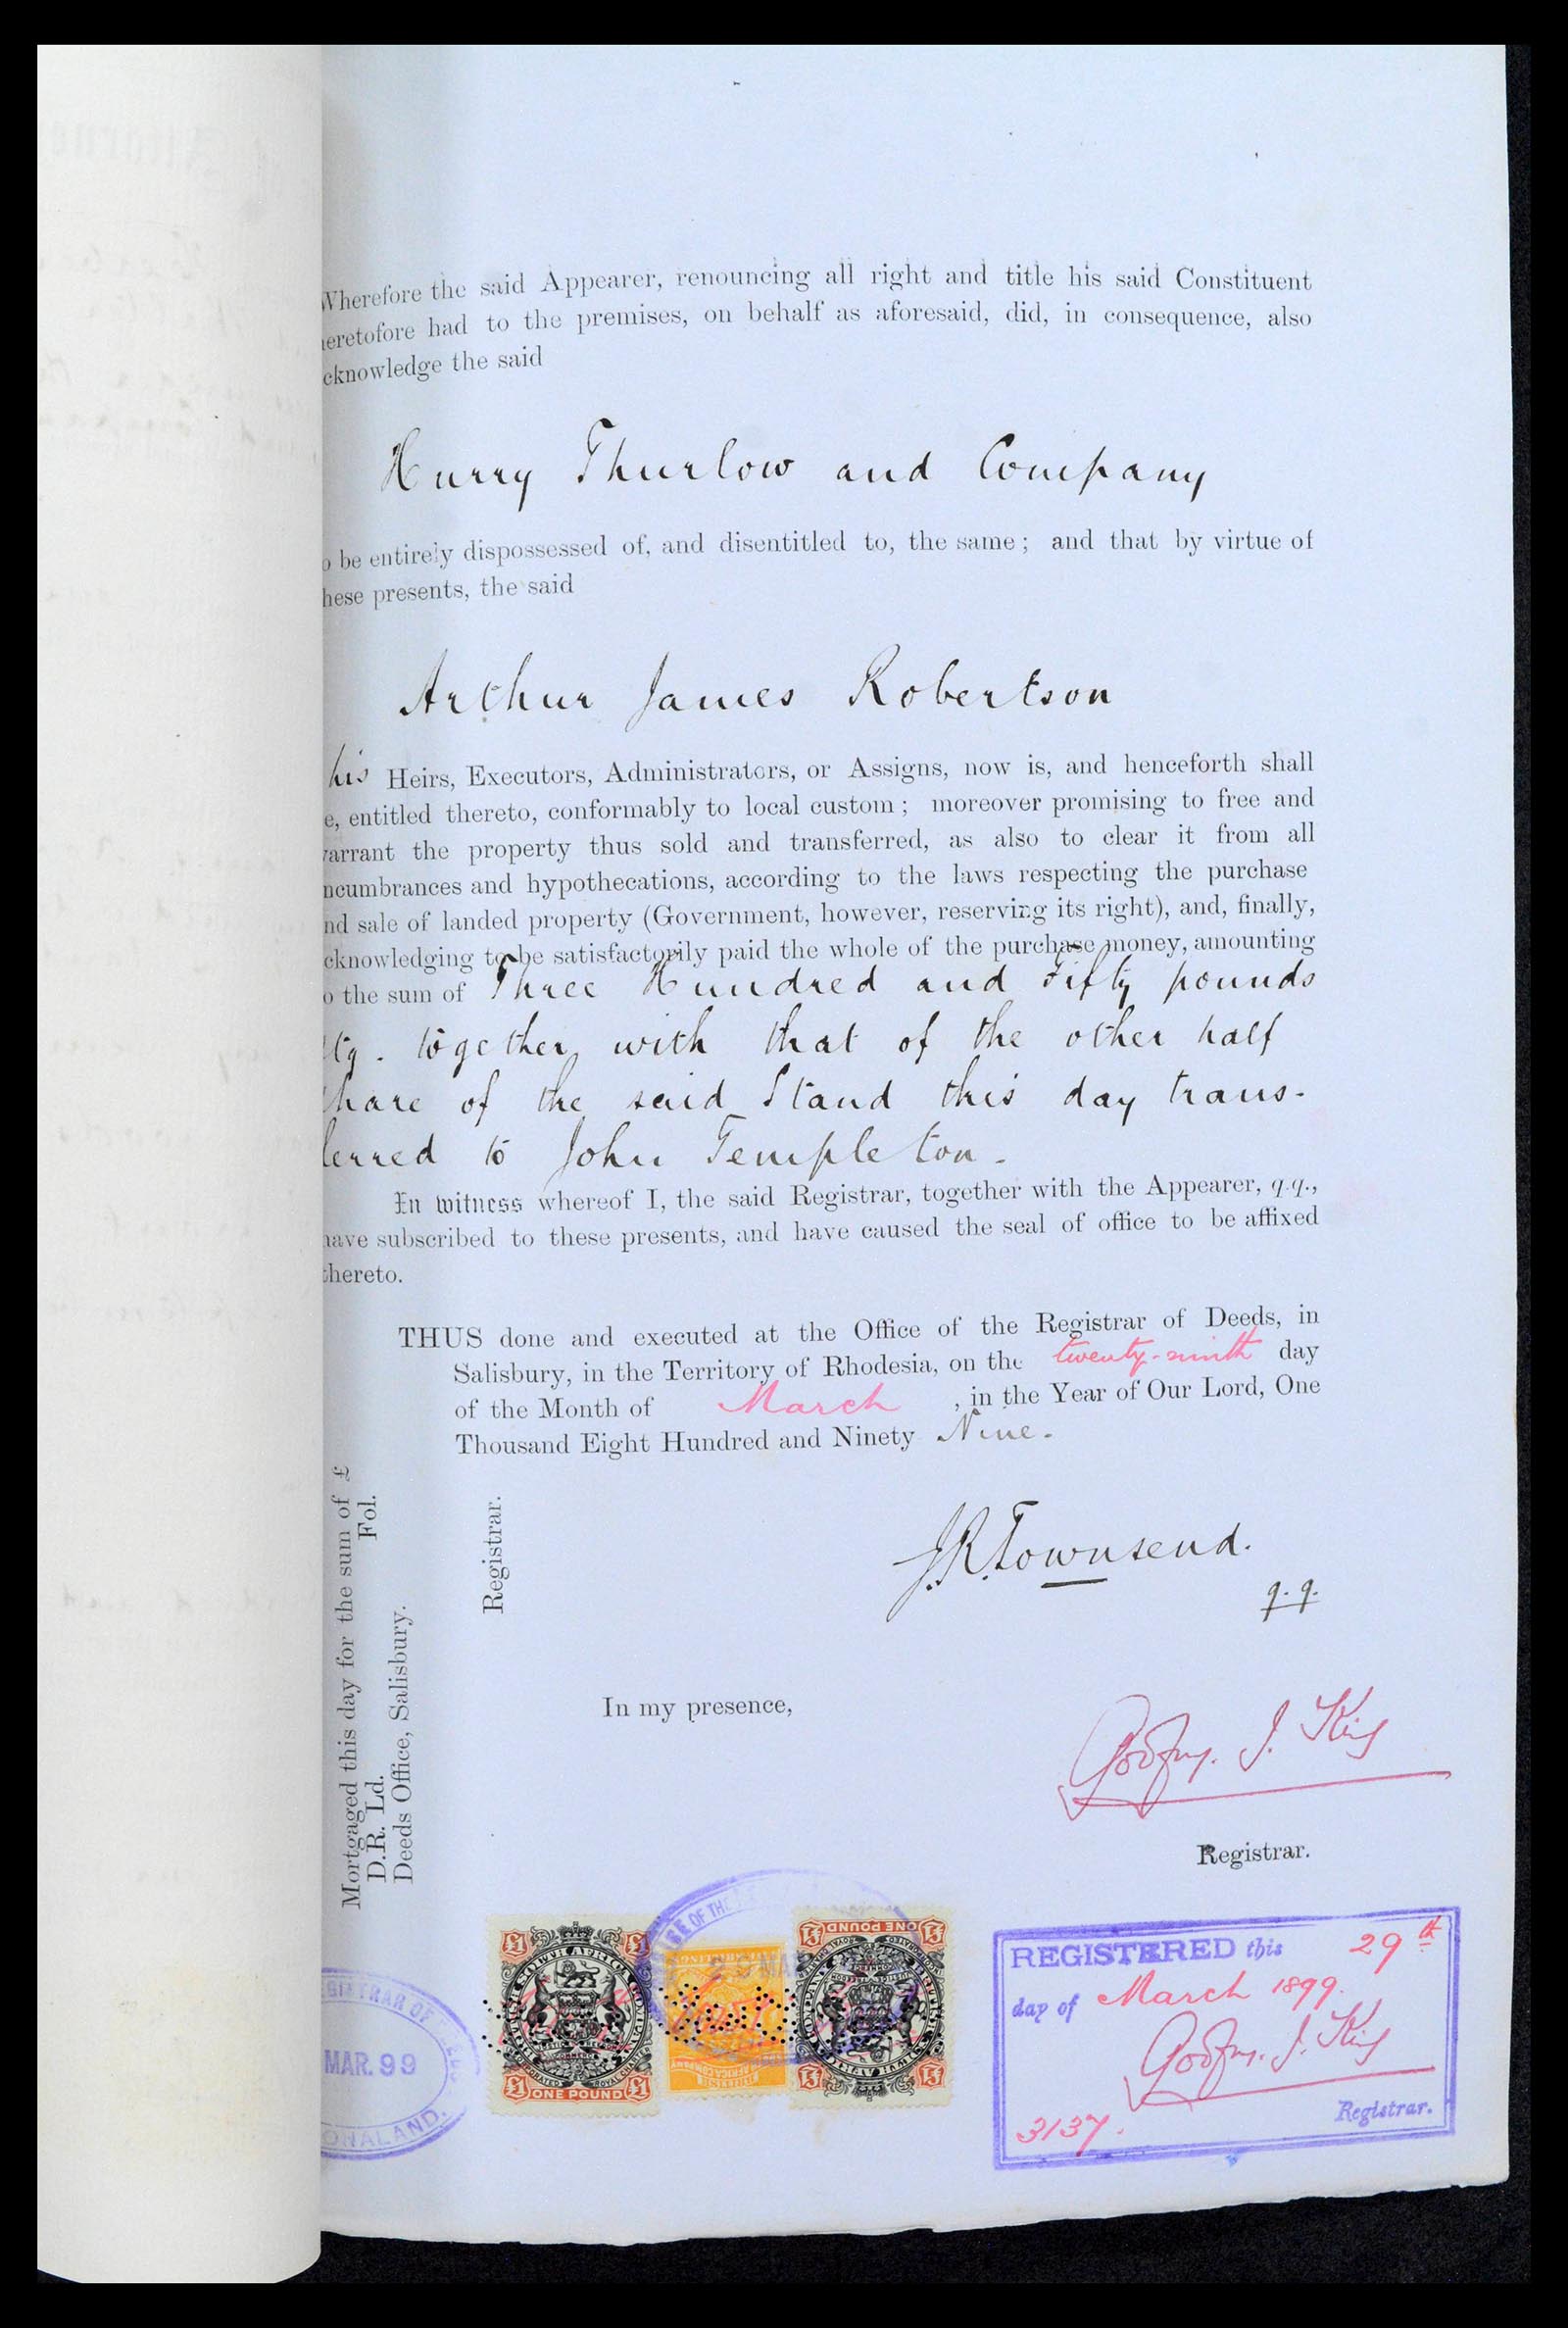 Wherefore the said Appearer, renouncing all right and title his said Constituent
eretofore had to the premises, on behalf as aforesaid, did, in consequence, also
cknowledge the said
Hurry Thurlow and Company
o be entirely dispossessed of, and disentitled to, the same; and that by virtue of
hese presents, the said
Arthur James Robertson
his Heirs, Executors, Administrators, or Assigns, now is, and henceforth shall
e, entitled thereto, conformably to local custom; moreover promising to free and
arrant the property thus sold and transferred, as also to clear it from all
ncumbrances and hypothecations, according to the laws respecting the purchase
nd sale of landed property (Government, however, reserving its right), and, finally,
cknowledging to be satisfactorily paid the whole of the purchase money, amounting
o the sum of Three Hundred and Fifty pounds
tg. together with that of the other half
hare of the said Stand this day trans-
ferred to John Templeton.
In witness whereof I, the said Registrar, together with the Appearer, q.q.,
have subscribed to these presents, and have caused the seal of office to be affixed
thereto.
THUS done and executed at the Office of the Registrar of Deeds, in
Salisbury, in the Territory of Rhodesia, on the twenty-ninth day
of the Month of March , in the Year of Our Lord, One
Thousand Eight Hundred and Ninety Nine.
Mortgaged this day for the sum of £
D.R. Ld. Fol.
Deeds Office, Salisbury.
Registrar.
J.R. Townsend.
q.q.
In my presence,
Godfrey J. King
Registrar.
£1 £1
SOUTH AFRICA
£1 ONE POUND £1
OF THE
29 MAR
£1 ONE POUND £1
REGISTRAR OF
MAR. 99
ONALAND.
REGISTERED this 29th
day of March 1899.
Godfrey J. King
Registrar.
3137.